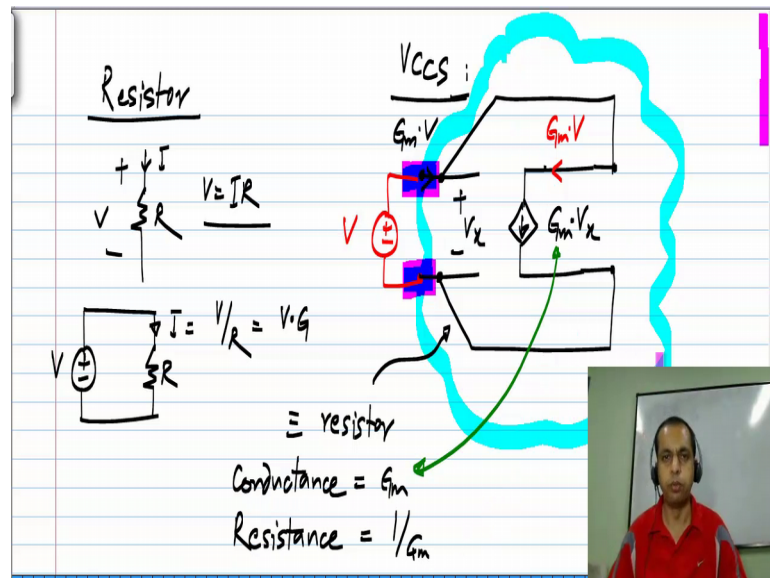 Resistor
+ ↓ I
V R V = IR
−
V ± I = V/R = V·G
R
VCCS :
Gm·V Gm·V
V ± + Vx − Gm·Vx
≡ resistor
Conductance = Gm
Resistance = 1/Gm